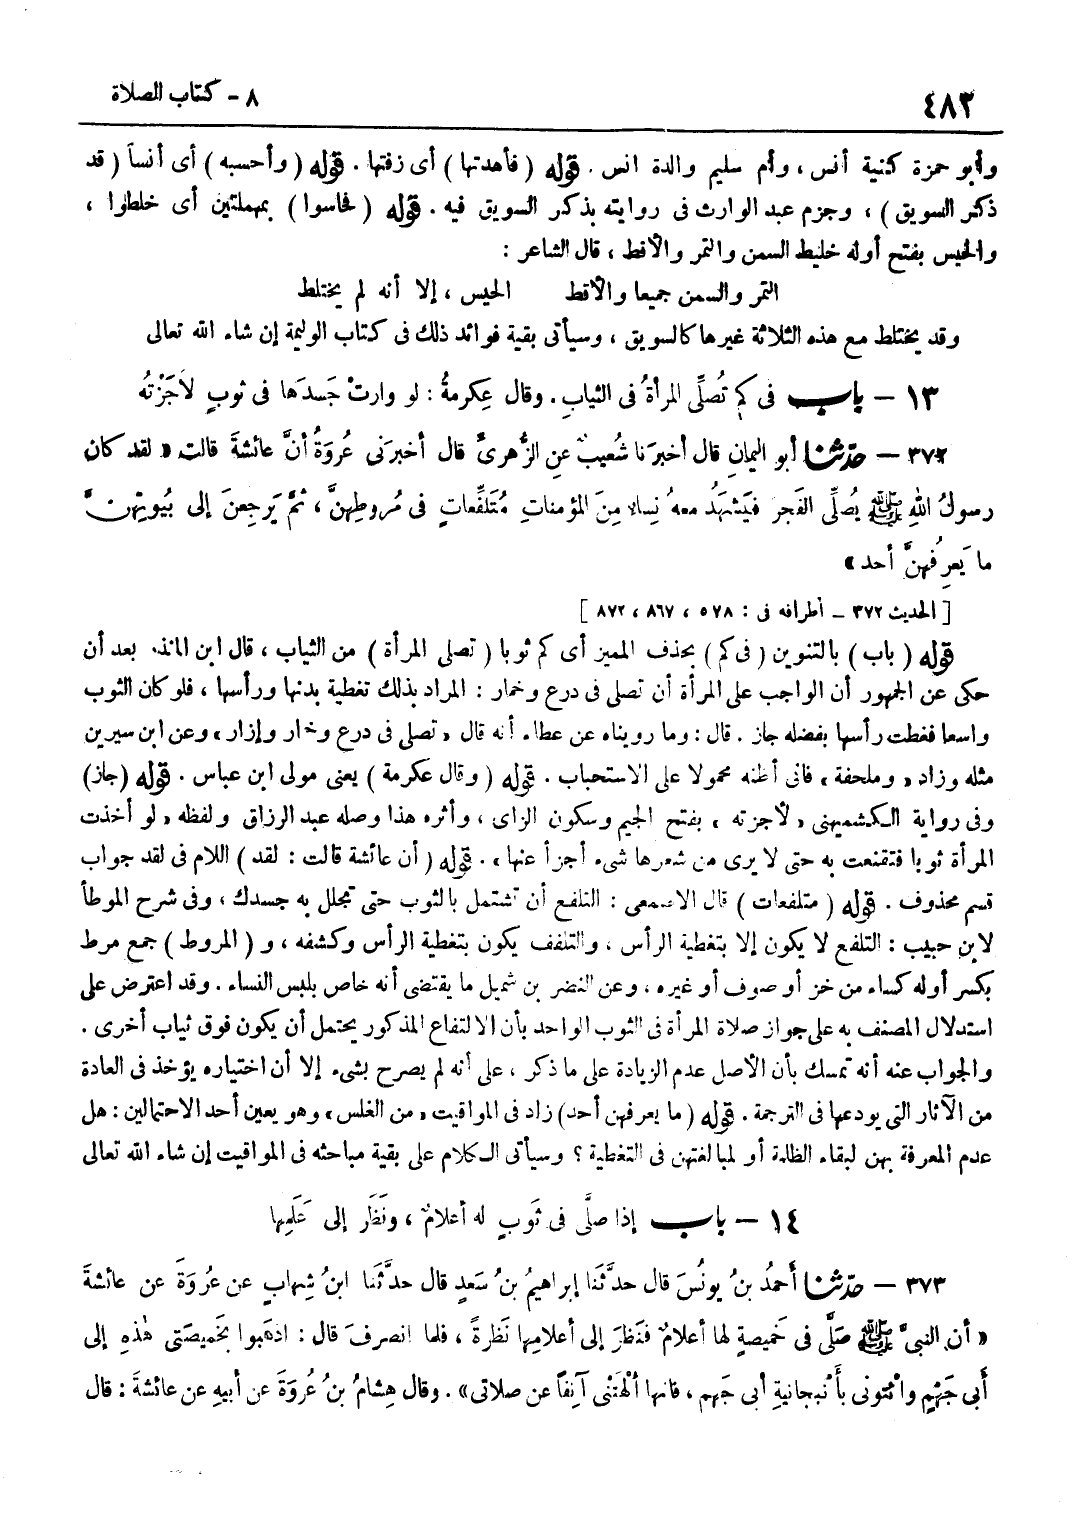 ٤٨٢
٨ - كتاب الصلاة
وأبو حمزة كنية أنس ، وأم سليم والدة انس . قوله ( فأهدتها ) أى زفتها . قوله ( وأحسبه ) أى أنساً ( قد
ذكر السويق ) ، وجزم عبد الوارث فى روايته بذكر السويق فيه . قوله ( فحاسوا ) بمهملتين أى خلطوا ،
والحيس بفتح أوله خليط السمن والتمر والأقط ، قال الشاعر :
التمر والسمن جميعا والأقط الحيس ، إلا أنه لم يختلط
وقد يختلط مع هذه الثلاثة غيرها كالسويق ، وسيأتى بقية فوائد ذلك فى كتاب الوليمة إن شاء الله تعالى
١٣ - باب فى كم تُصلِّى المرأةُ فى الثيابِ . وقال عِكرمةُ : لو وارتْ جَسدَها فى ثوبٍ لأجَزْتهُ
٣٧٢ - حدثنا أبو اليمانِ قال أخبرَنا شُعيبٌ عنِ الزُّهرىِّ قال أخبرَنى عُروةُ أنَّ عائشةَ قالت « لقد كان
رسولُ اللهِ ﷺ يُصلِّى الفَجرَ فيَشهَدُ معهُ نِساءٌ مِنَ المؤمناتِ مُتَلفِّعاتٍ فى مُروطِهنَّ ، ثمَّ يَرجِعنَ إلى بُيوتِهنَّ
ما يَعرِفُهنَّ أحد »
[ الحديث ٣٧٢ - أطرافه فى : ٥٧٨ ، ٨٦٧ ، ٨٧٢ ]
قوله ( باب ) بالتنوين ( فى كم ) بحذف المميز أى كم ثوبا ( تصلى المرأة ) من الثياب ، قال ابن المنذر بعد أن
حكى عن الجمهور أن الواجب على المرأة أن تصلى فى درع وخمار : المراد بذلك تغطية بدنها ورأسها ، فلو كان الثوب
واسعا فغطت رأسها بفضله جاز . قال : وما رويناه عن عطاء أنه قال « تصلى فى درع وخمار وإزار » وعن ابن سيرين
مثله وزاد « وملحفة » فانى أظنه محمولا على الاستحباب . قوله ( وقال عكرمة ) يعنى مولى ابن عباس . قوله ( جاز )
وفى رواية الكشميهنى « لأجزته » بفتح الجيم وسكون الزاى ، وأثره هذا وصله عبد الرزاق ولفظه « لو أخذت
المرأة ثوبا فتقنعت به حتى لا يرى من شعرها شىء أجزأ عنها » . قوله ( أن عائشة قالت : لقد ) اللام فى لقد جواب
قسم محذوف . قوله ( متلفعات ) قال الاصمعى : التلفع أن تشتمل بالثوب حتى تجلل به جسدك ، وفى شرح الموطأ
لابن حبيب : التلفع لا يكون إلا بتغطية الرأس ، والتلفف يكون بتغطية الرأس وكشفه ، و ( المروط ) جمع مرط
بكسر أوله كساء من خز أو صوف أو غيره ، وعن النضر بن شميل ما يقتضى أنه خاص بلبس النساء . وقد اعترض على
استدلال المصنف به على جواز صلاة المرأة فى الثوب الواحد بأن الالتفاع المذكور يحتمل أن يكون فوق ثياب أخرى .
والجواب عنه أنه تمسك بأن الأصل عدم الزيادة على ما ذكر ، على أنه لم يصرح بشىء إلا أن اختياره يؤخذ فى العادة
من الآثار التى يودعها فى الترجمة . قوله ( ما يعرفهن أحد ) زاد فى المواقيت « من الغلس » وهو يعين أحد الاحتمالين : هل
عدم المعرفة بهن لبقاء الظلمة أو لمبالغتهن فى التغطية ؟ وسيأتى الكلام على بقية مباحثه فى المواقيت إن شاء الله تعالى
١٤ - باب إذا صلَّى فى ثَوبٍ له أعلامٌ ، ونَظَر إلى عَلَمِها
٣٧٣ - حدثنا أَحمدُ بنُ يونُسَ قال حدَّثَنا إبراهيمُ بنُ سَعدٍ قال حدَّثَنا ابنُ شِهابٍ عن عُروَةَ عن عائشةَ
« أن النبىَّ ﷺ صَلَّى فى خَميصةٍ لها أعلامٌ فنَظرَ إلى أعلامِها نَظرةً ، فلما انصرفَ قال : اذهَبوا بخَميصَتى هٰذهِ إلى
أَبى جَهْمٍ وائتونى بأَنْبجانيةِ أبى جَهم ، فانها ألْهتْنى آنِفاً عن صلاتى » . وقال هِشامُ بنُ عُروَةَ عن أبيهِ عن عائشةَ : قال